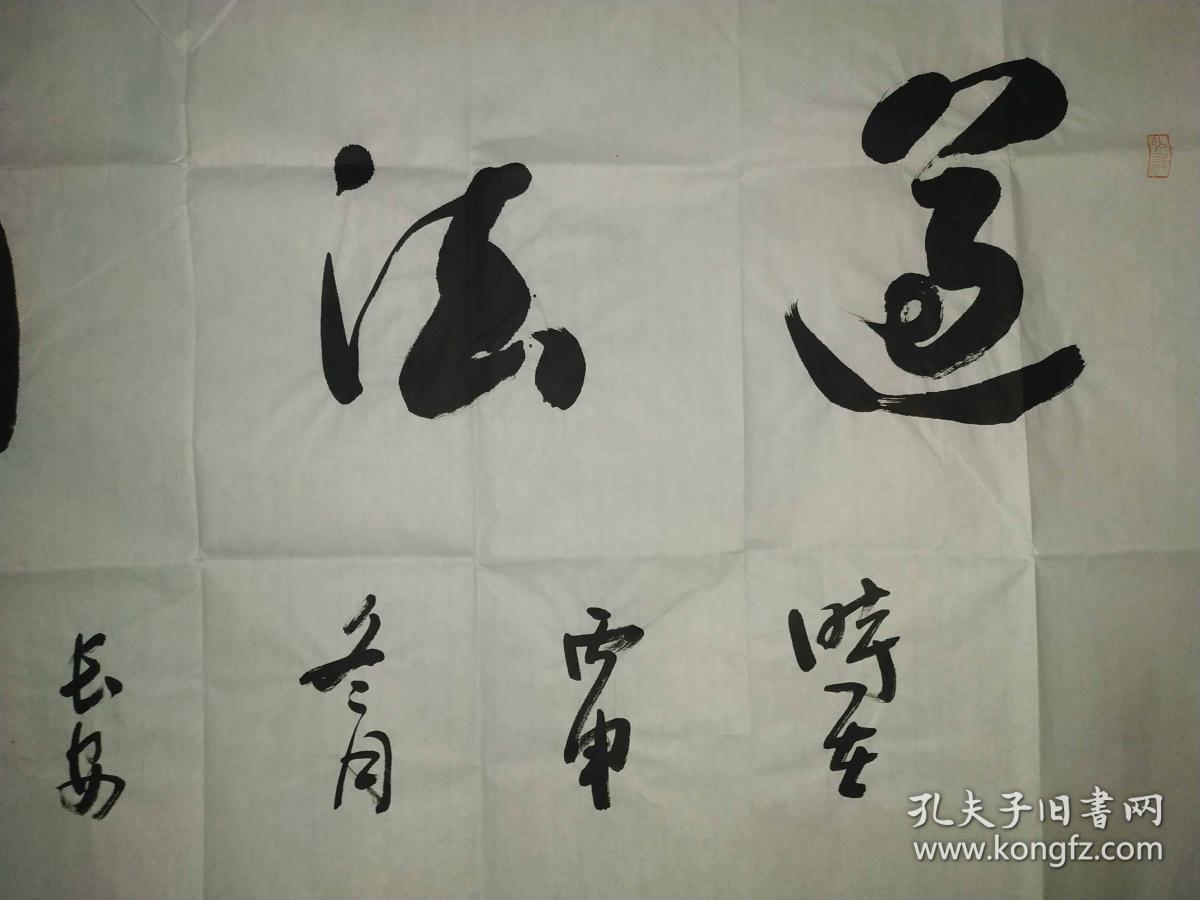 道法
時在
丙申
冬月
长安
孔夫子旧书网
www.kongfz.com